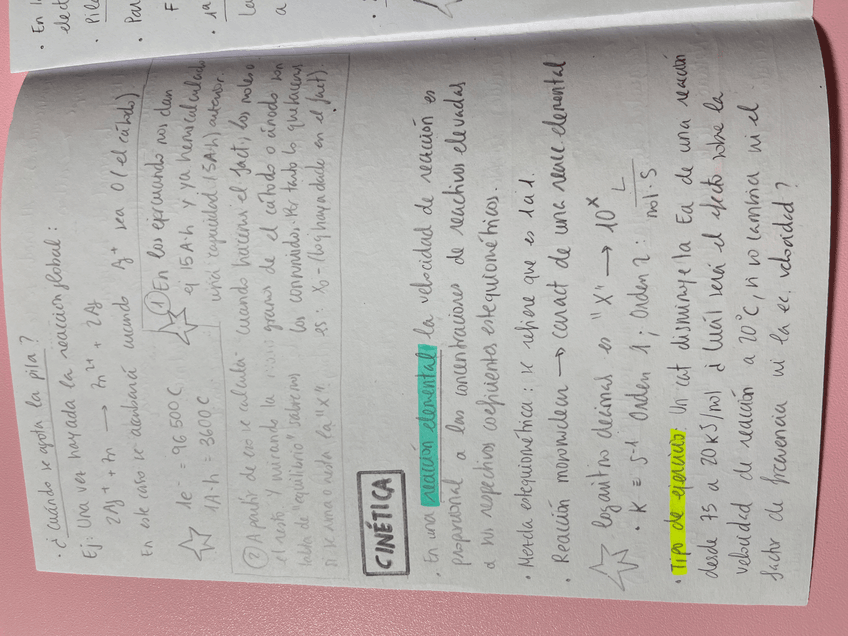 · ¿Cuándo se agota la pila?
Ej: Una vez hayada la reacción global:
2Ag⁺ + Zn → Zn²⁺ + 2Ag
En este caso se acabará cuando Ag⁺ sea 0 (el cátodo)
1e⁻ = 96500 C
1A·h = 3600 C
① En los ejercicios nos dan
ej 15 A·h y ya hemos calculado
una capacidad (5A·h) anterior.
② A partir de eso se calcula. Cuando hacemos el fact, los moles o
el resto y mirando la gramos de el cátodo o ánodo son
tabla de "equilibrio" sabremos los consumidos. Por tanto lo que hacemos
si se suma o resta la "X". es: X₀ - (lo q haya dado en el fact).
CINÉTICA
· En una reacción elemental la velocidad de reacción es
proporcional a las concentraciones de reactivos elevadas
a sus respectivos coeficientes estequiométricos.
· Mezcla estequiométrica: se refiere que es 1 a 1.
· Reacción monomolecular → caract de una reacc elemental
logaritmo decimal es "X" → 10ˣ
· K = s⁻¹ Orden 1; Orden 2: L / mol·s
· Tipo de ejercicio: Un cat disminuye la Ea de una reacción
desde 75 a 20 kJ/mol ¿Cuál será el efecto sobre la
velocidad de reacción a 20°C, si no cambia ni el
factor de frecuencia ni la ec. velocidad?
· En
elect
· Pila
· Par
F
· 1ª
La
a